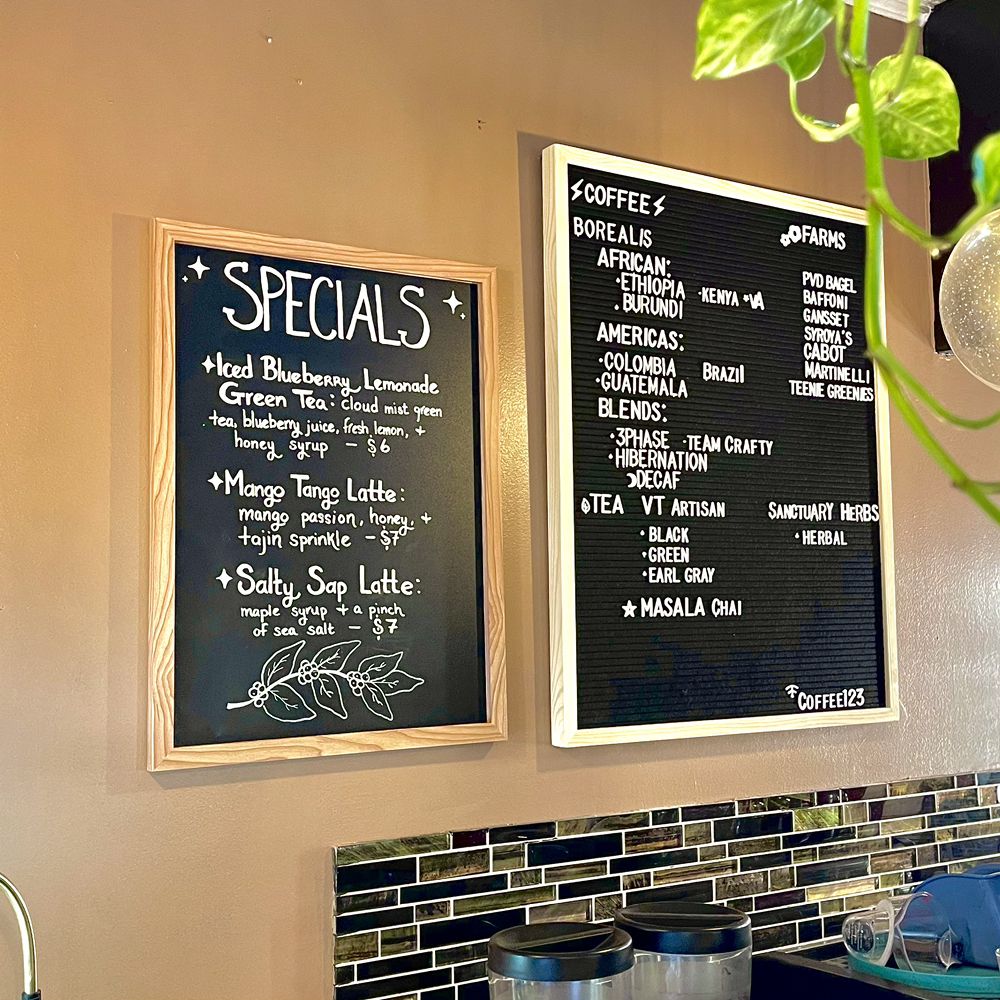 SPECIALS
Iced Blueberry Lemonade
Green Tea: cloud mist green
tea, blueberry juice, fresh lemon, +
honey syrup – $6
Mango Tango Latte:
mango passion, honey, +
tajin sprinkle – $7
Salty Sap Latte:
maple syrup + a pinch
of sea salt – $7
COFFEE
BOREALIS
AFRICAN:
·ETHIOPIA ·KENYA
·BURUNDI
AMERICAS:
·COLOMBIA BRAZIL
·GUATEMALA
BLENDS:
·3PHASE ·TEAM CRAFTY
·HIBERNATION
DECAF
TEA VT ARTISAN
·BLACK
·GREEN
·EARL GRAY
MASALA CHAI
FARMS
PVD BAGEL
BAFFONI
GANSSET
SYROYA'S
CABOT
MARTINELLI
TEENIE GREENIES
SANCTUARY HERBS
·HERBAL
COFFEE123